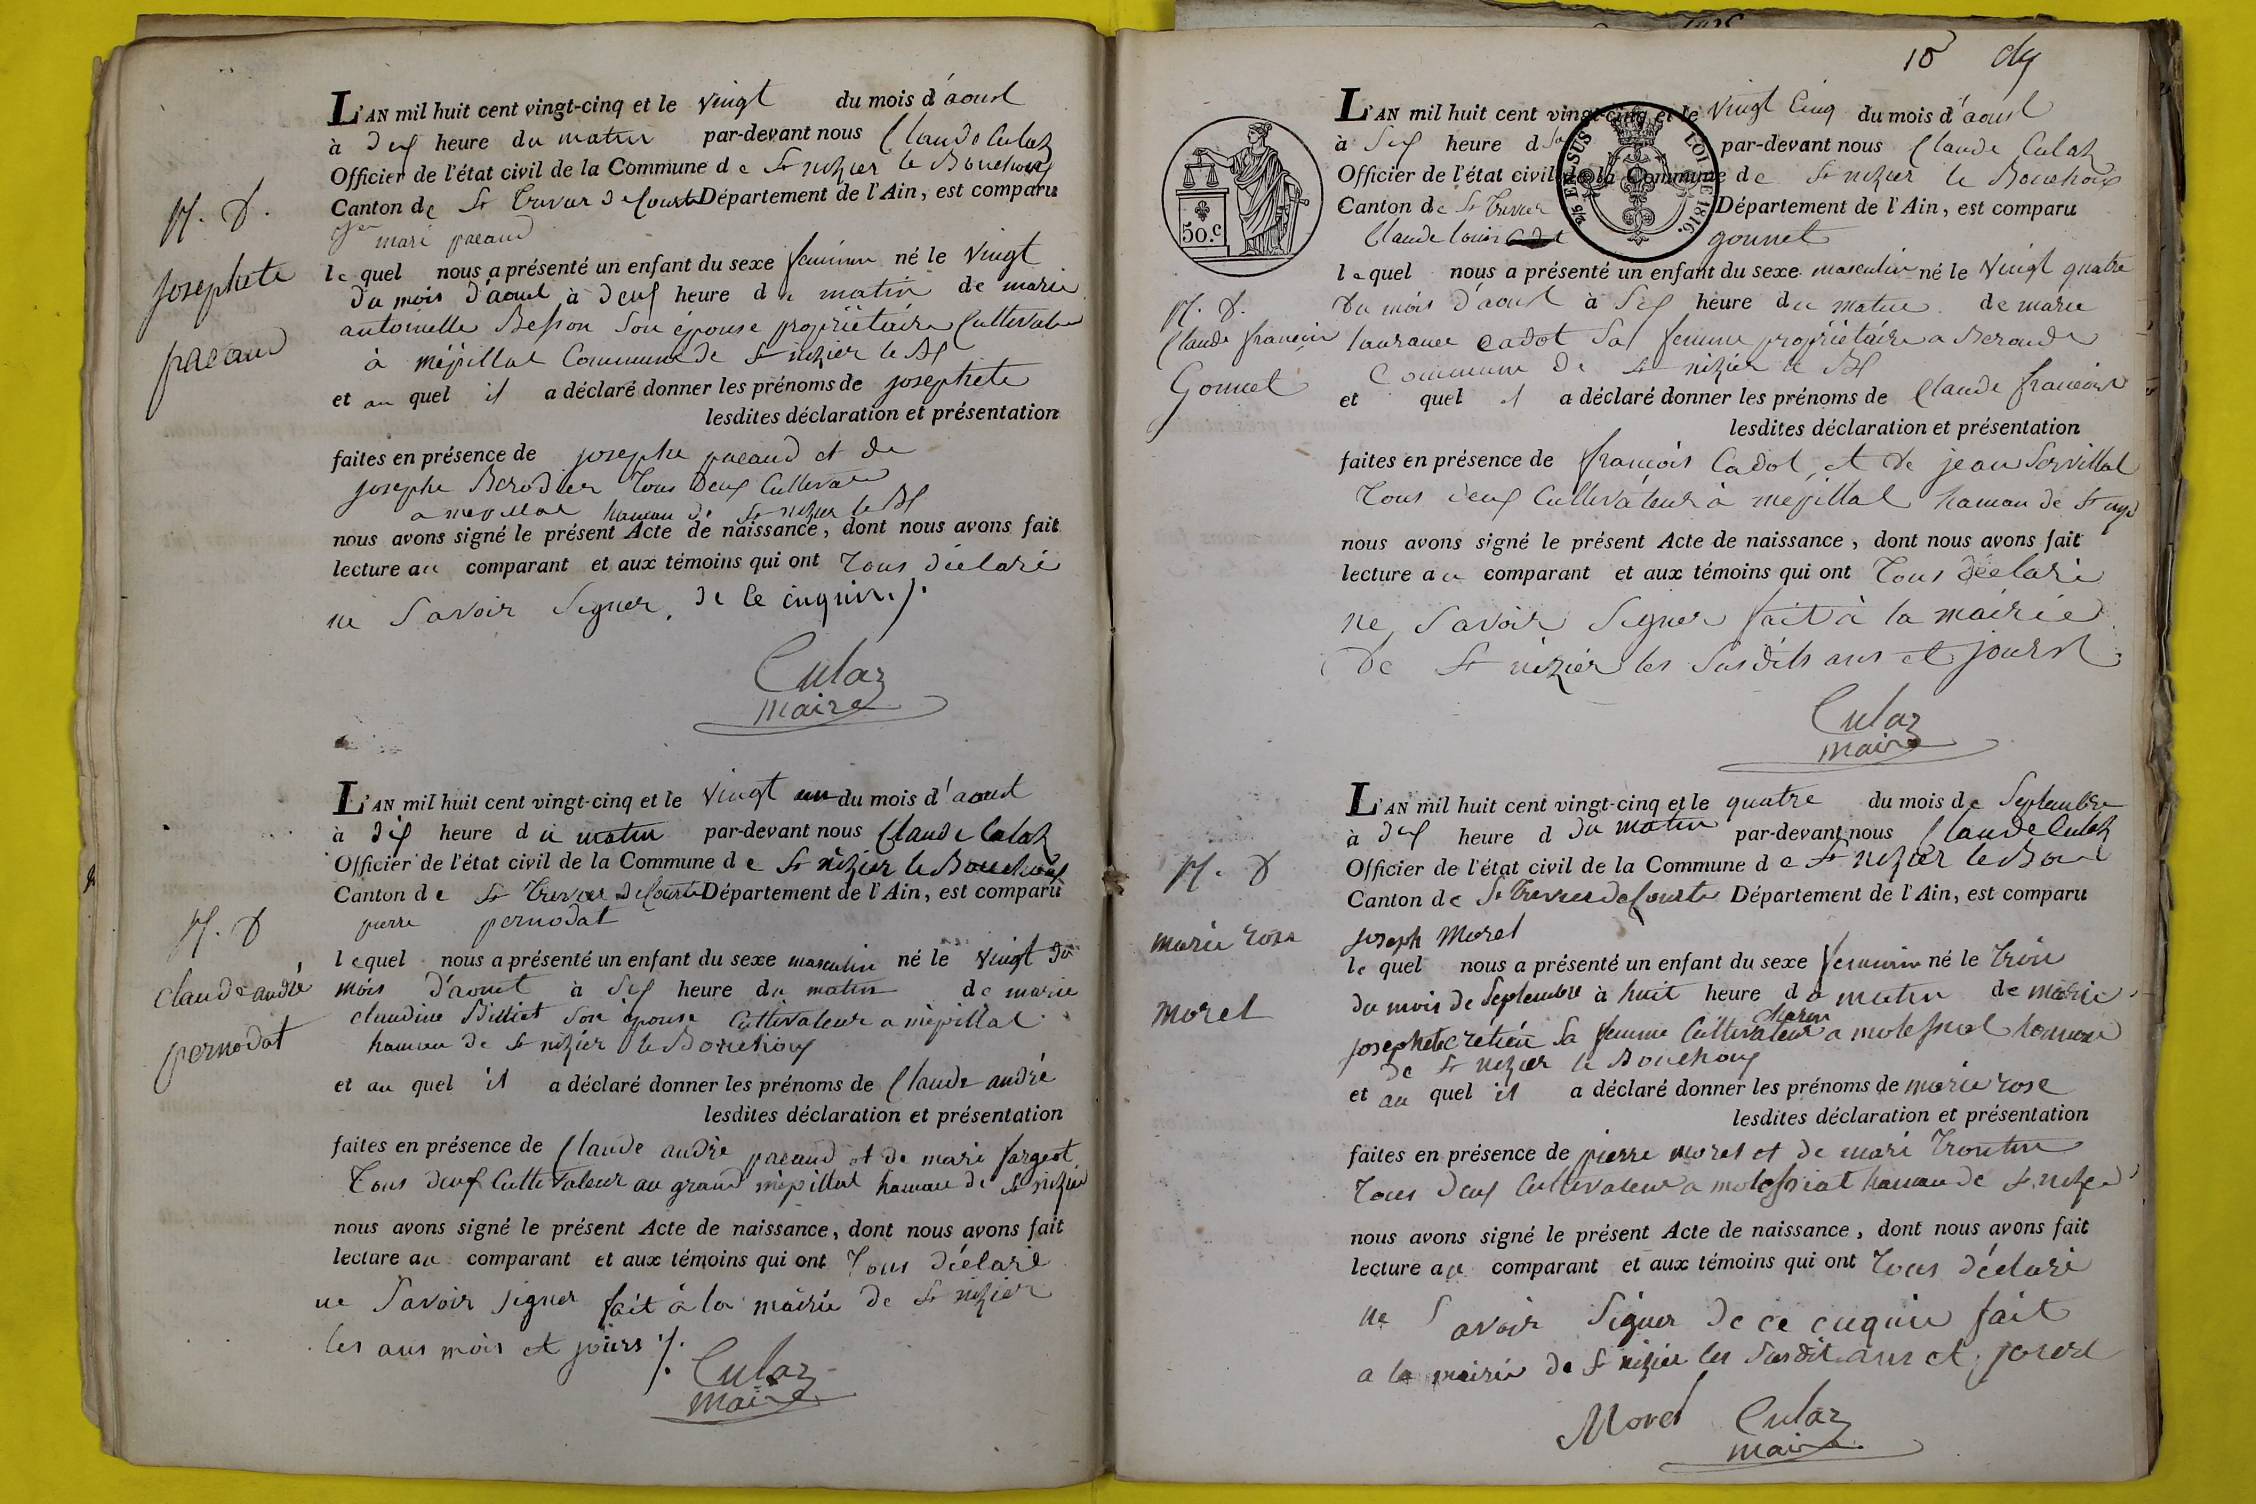 N. D.
Josephete
pacaud
L'AN mil huit cent vingt-cinq et le vingt du mois d'aoust
à deux heure du matin par-devant nous Claude Culaz
Officier de l'état civil de la Commune de St nizier le Bouchoux
Canton de St Trivier de Courte Département de l'Ain, est comparu
mari pacaud
lequel nous a présenté un enfant du sexe feminin né le vingt
du mois d'aoust à deux heure du matin de marie
antoinette Besson son épouse propriétaire Cultivateur
à mépillat Commune de St nizier le Bx
et au quel il a déclaré donner les prénoms de josephete
lesdites déclaration et présentation
faites en présence de josephe pacaud et de
josephe Berodier Tous deux Cultivateur
a mepillat hamau de St nizier le Bx
nous avons signé le présent Acte de naissance, dont nous avons fait
lecture au comparant et aux témoins qui ont Tous déclaré
ne Savoir Signer, de ce enquis ./.
Culaz
maire
N. D
claude andré
pernodat
L'AN mil huit cent vingt-cinq et le vingt un du mois d'aoust
à dix heure du matin par-devant nous Claude Culaz
Officier de l'état civil de la Commune de St nizier le Bouchoux
Canton de St Trivier de Courte Département de l'Ain, est comparu
pierre pernodat
lequel nous a présenté un enfant du sexe masculin né le vingt du
mois d'aoust à Six heure du matin de marie
claudine Billiet son épouse Cultivateur a mépillat
hamau de St nizier le Bouchoux
et au quel il a déclaré donner les prénoms de Claude andré
lesdites déclaration et présentation
faites en présence de Claude andré pacaud et de mari fargeot
Tous deux Cultivateur au grand mépillat hamau de St nizier
nous avons signé le présent Acte de naissance, dont nous avons fait
lecture au comparant et aux témoins qui ont Tous déclaré
ne Savoir signer fait à la mairie de St nizier
les ans mois et jours ./.
Culaz
maire
10
50.c
EN SUS LOI DE 1816.
N. D.
Claude francois
Gonnet
L'AN mil huit cent vingt-cinq et le vingt Cinq du mois d'aoust
à Six heure du par-devant nous Claude Culaz
Officier de l'état civil de la Commune de St nizier le Bouchoux
Canton de St Trivier Département de l'Ain, est comparu
Claude louis gonnet
lequel nous a présenté un enfant du sexe masculin né le vingt quatre
du mois d'aoust à Six heure du matin de marie
laurance Cadot Sa femme propriétaire a Beroude
Commune de St nizier le Bx
et quel il a déclaré donner les prénoms de Claude francois
lesdites déclaration et présentation
faites en présence de francois Cadot, et de jean Sorvillat
Tous deux Cultivateur à mépillat hamau de St
nous avons signé le présent Acte de naissance, dont nous avons fait
lecture au comparant et aux témoins qui ont Tous déclaré
ne Savoir Signer fait à la mairie
de St nizier les Susdits ans et jours
Culaz
maire
N. D
marie rose
morel
L'AN mil huit cent vingt-cinq et le quatre du mois de Septembre
à dix heure d du matin par-devant nous Claude Culaz
Officier de l'état civil de la Commune de St nizier le Bou
Canton de St Trivier de Courte Département de l'Ain, est comparu
joseph Morel
lequel nous a présenté un enfant du sexe feminin né le trois
du mois de Septembre à huit heure du matin de marie
josephete crétién Sa femme Cultivateur a molessiat hamau
de St nizier le Bouchoux
et au quel il a déclaré donner les prénoms de marie rose
lesdites déclaration et présentation
faites en présence de pierre morel et de mari Trontin
Tous deux Cultivateur a molessiat hamau de St nizier
nous avons signé le présent Acte de naissance, dont nous avons fait
lecture au comparant et aux témoins qui ont Tous déclaré
ne Savoir Signer de ce enquis fait
a la mairie de St nizier les Susdit ans et jours
Morel Culaz
maire